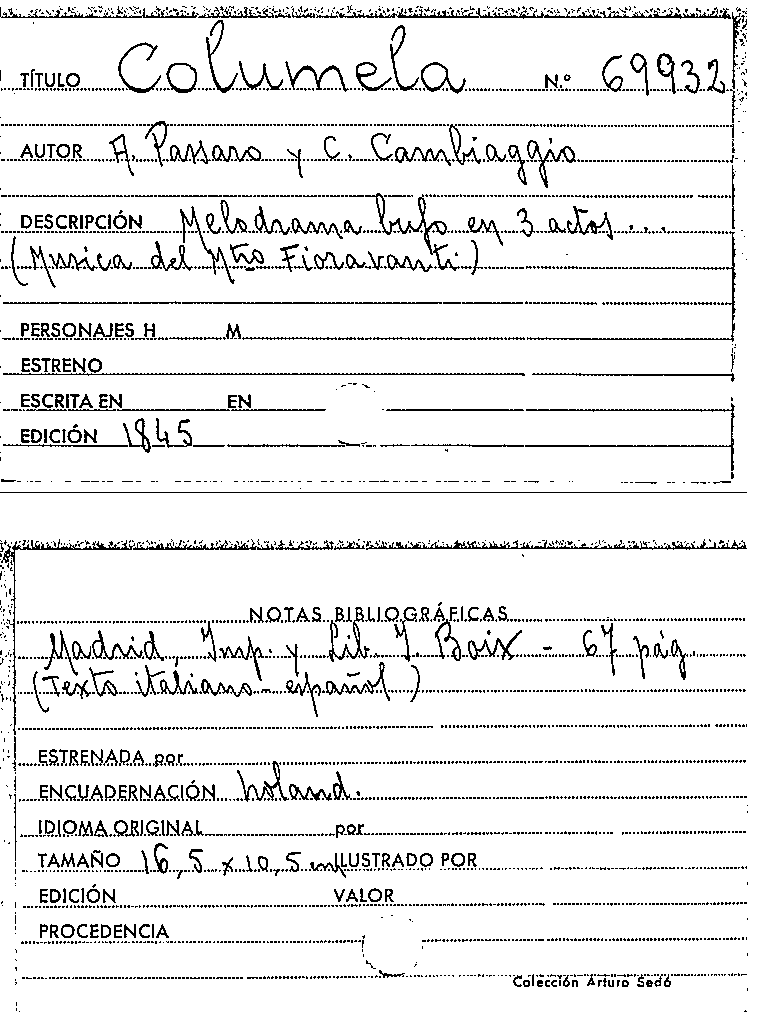 TÍTULO Columela N.º 69932
AUTOR A. Passaro y C. Cambiaggio
DESCRIPCIÓN Melodrama bufo en 3 actos...
(Musica del Mtro Fioravanti)
PERSONAJES H M
ESTRENO
ESCRITA EN EN
EDICIÓN 1845
NOTAS BIBLIOGRÁFICAS
Madrid, Imp. y Lib. I. Boix - 67 pág.
(Texto italiano-español)
ESTRENADA por
ENCUADERNACIÓN holand.
IDIOMA ORIGINAL por
TAMAÑO 16,5 x 10,5 cm ILUSTRADO POR
EDICIÓN VALOR
PROCEDENCIA
Colección Arturo Sedó